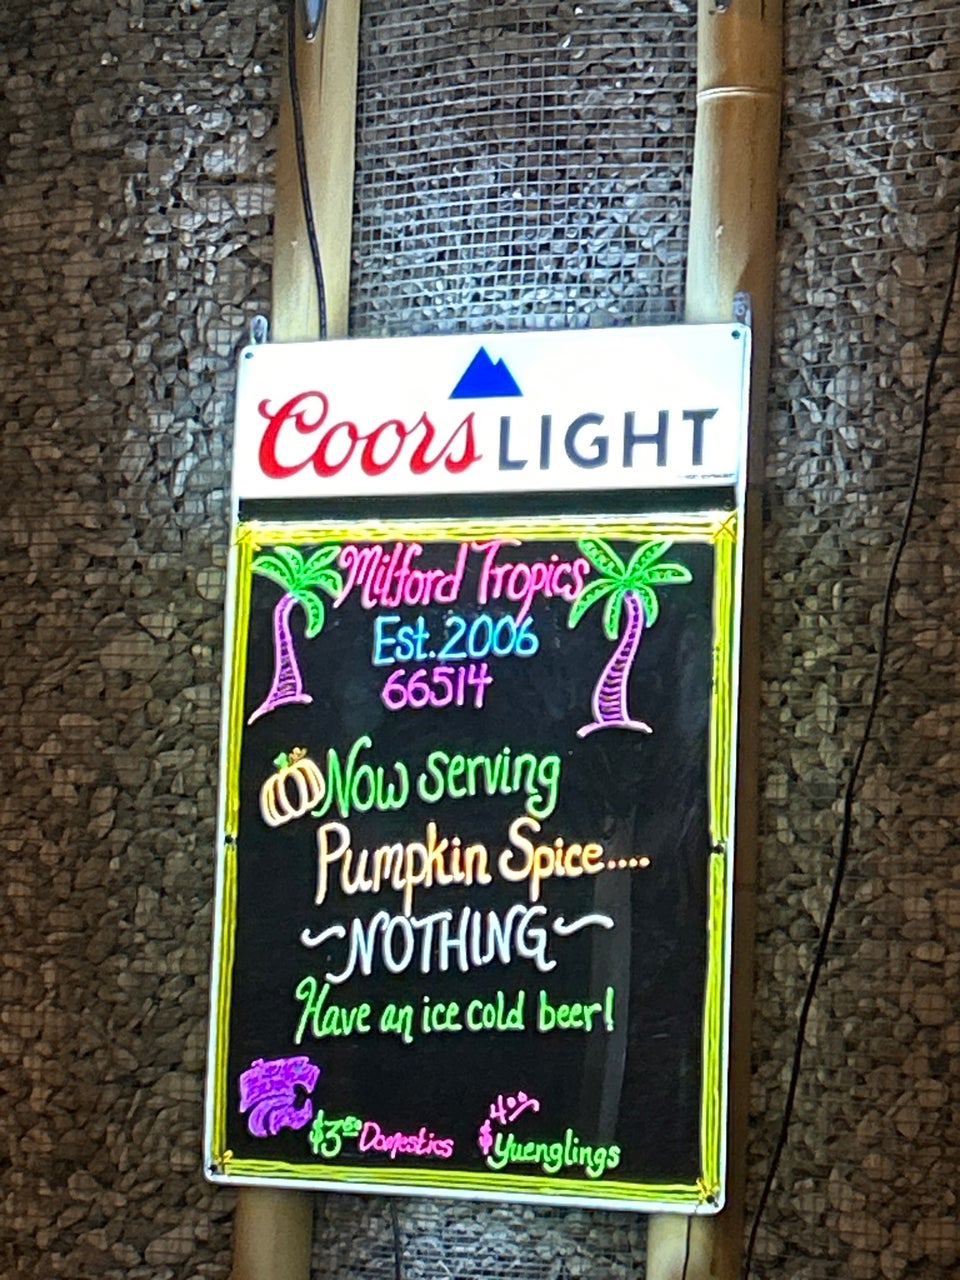 Coors LIGHT
Milford Tropics
Est. 2006
66514
Now serving
Pumpkin Spice....
~NOTHING~
Have an ice cold beer!
$3⁵⁰ Domestics
$4⁰⁰ Yuenglings